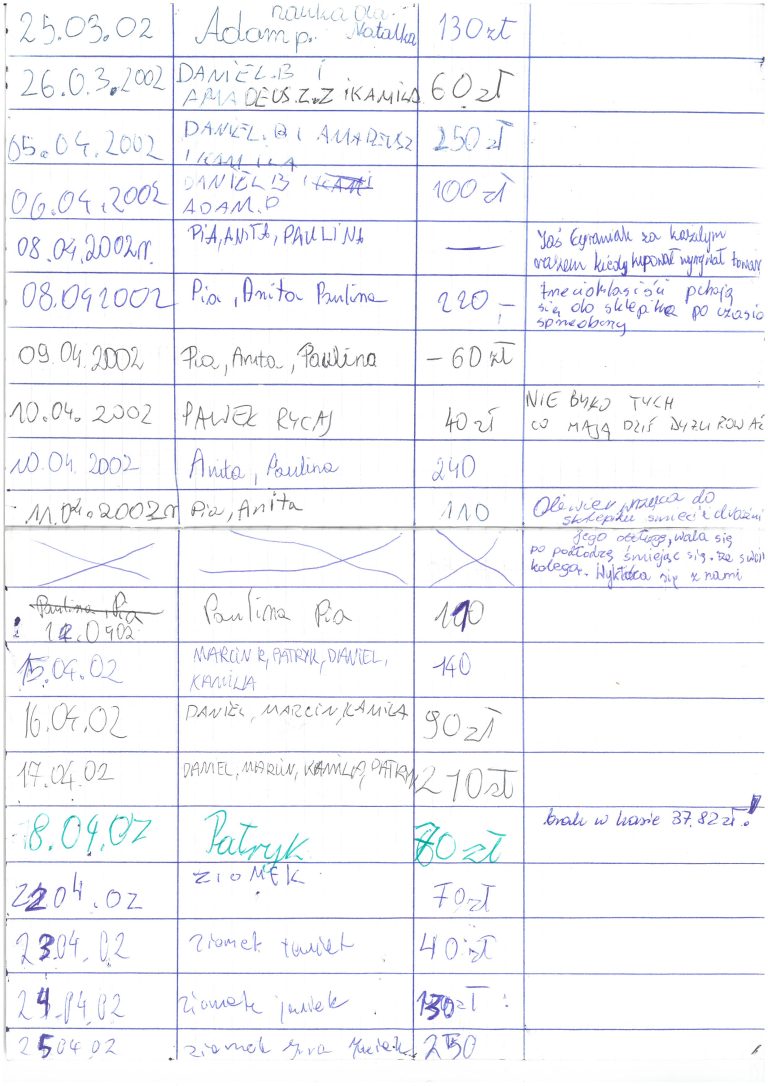 nauka dla
25.03.02 Adam p. Natalka 130zł
26.0.3.2002 DANIEL.B I 60zł
AMADEUSZ.Z IKAMILA
05.04.2002 DANIEL.B I AMADEUSZ 250 zł
I KAMILA
06.04.2002 DANIEL B I KAMI 100 zł
ADAM.P
08.04.2002r. PIA, ANITA, PAULINA — Jaś za każdym
razem kiedy kupował wymyślał towar
08.04 2002 Pia, Anita Paulina 220,- trzecioklasiści pchają
się do sklepika po czasie
09.04.2002 Pia, Anita, Paulina – 60 zł
10.04. 2002 PAWEŁ RYCAJ 40 zł NIE BYŁO TYCH
CO MAJĄ DZIŚ DYŻUROWAĆ
10.04 2002 Anita, Paulina 240
11.04.2002r Pia, Anita 110 wrzuca do
sklepiku śmieci i
jego obsługę, wala się
po podłodze śmiejąc się ze swoim
kolegą. Wykłóca się z nami
Paulina, Pia
12.0402 Paulina Pia 110
15.04.02 MARCIN R, PATRYK, DANIEL, 140
KAMILIA
16.04.02 DANIEL, MARCIN, KAMILA 90zł
17.04.02 DANIEL, MARCIN, KAMILIA, PATRYK 210zł
18.04.02 Patryk 70zł brak w kasie 37,82 zł.!
22 04.02 ZIOMEK 70zł
23 04.02 ziomek 40 zł
24.04.02 ziomek 130zł
25 04.02 ziomek 250